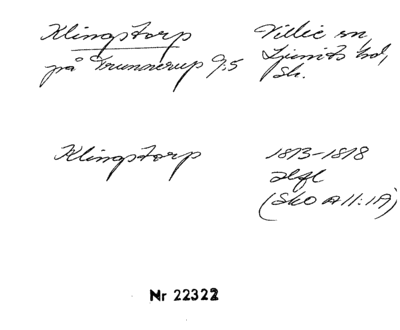 Klingstorp Villie sn,
på Trunnerup 9:5 Ljunits hd,
Sk.
Klingstorp 1813-1818
Hfl
(Sko A II:1A)
Nr 22322